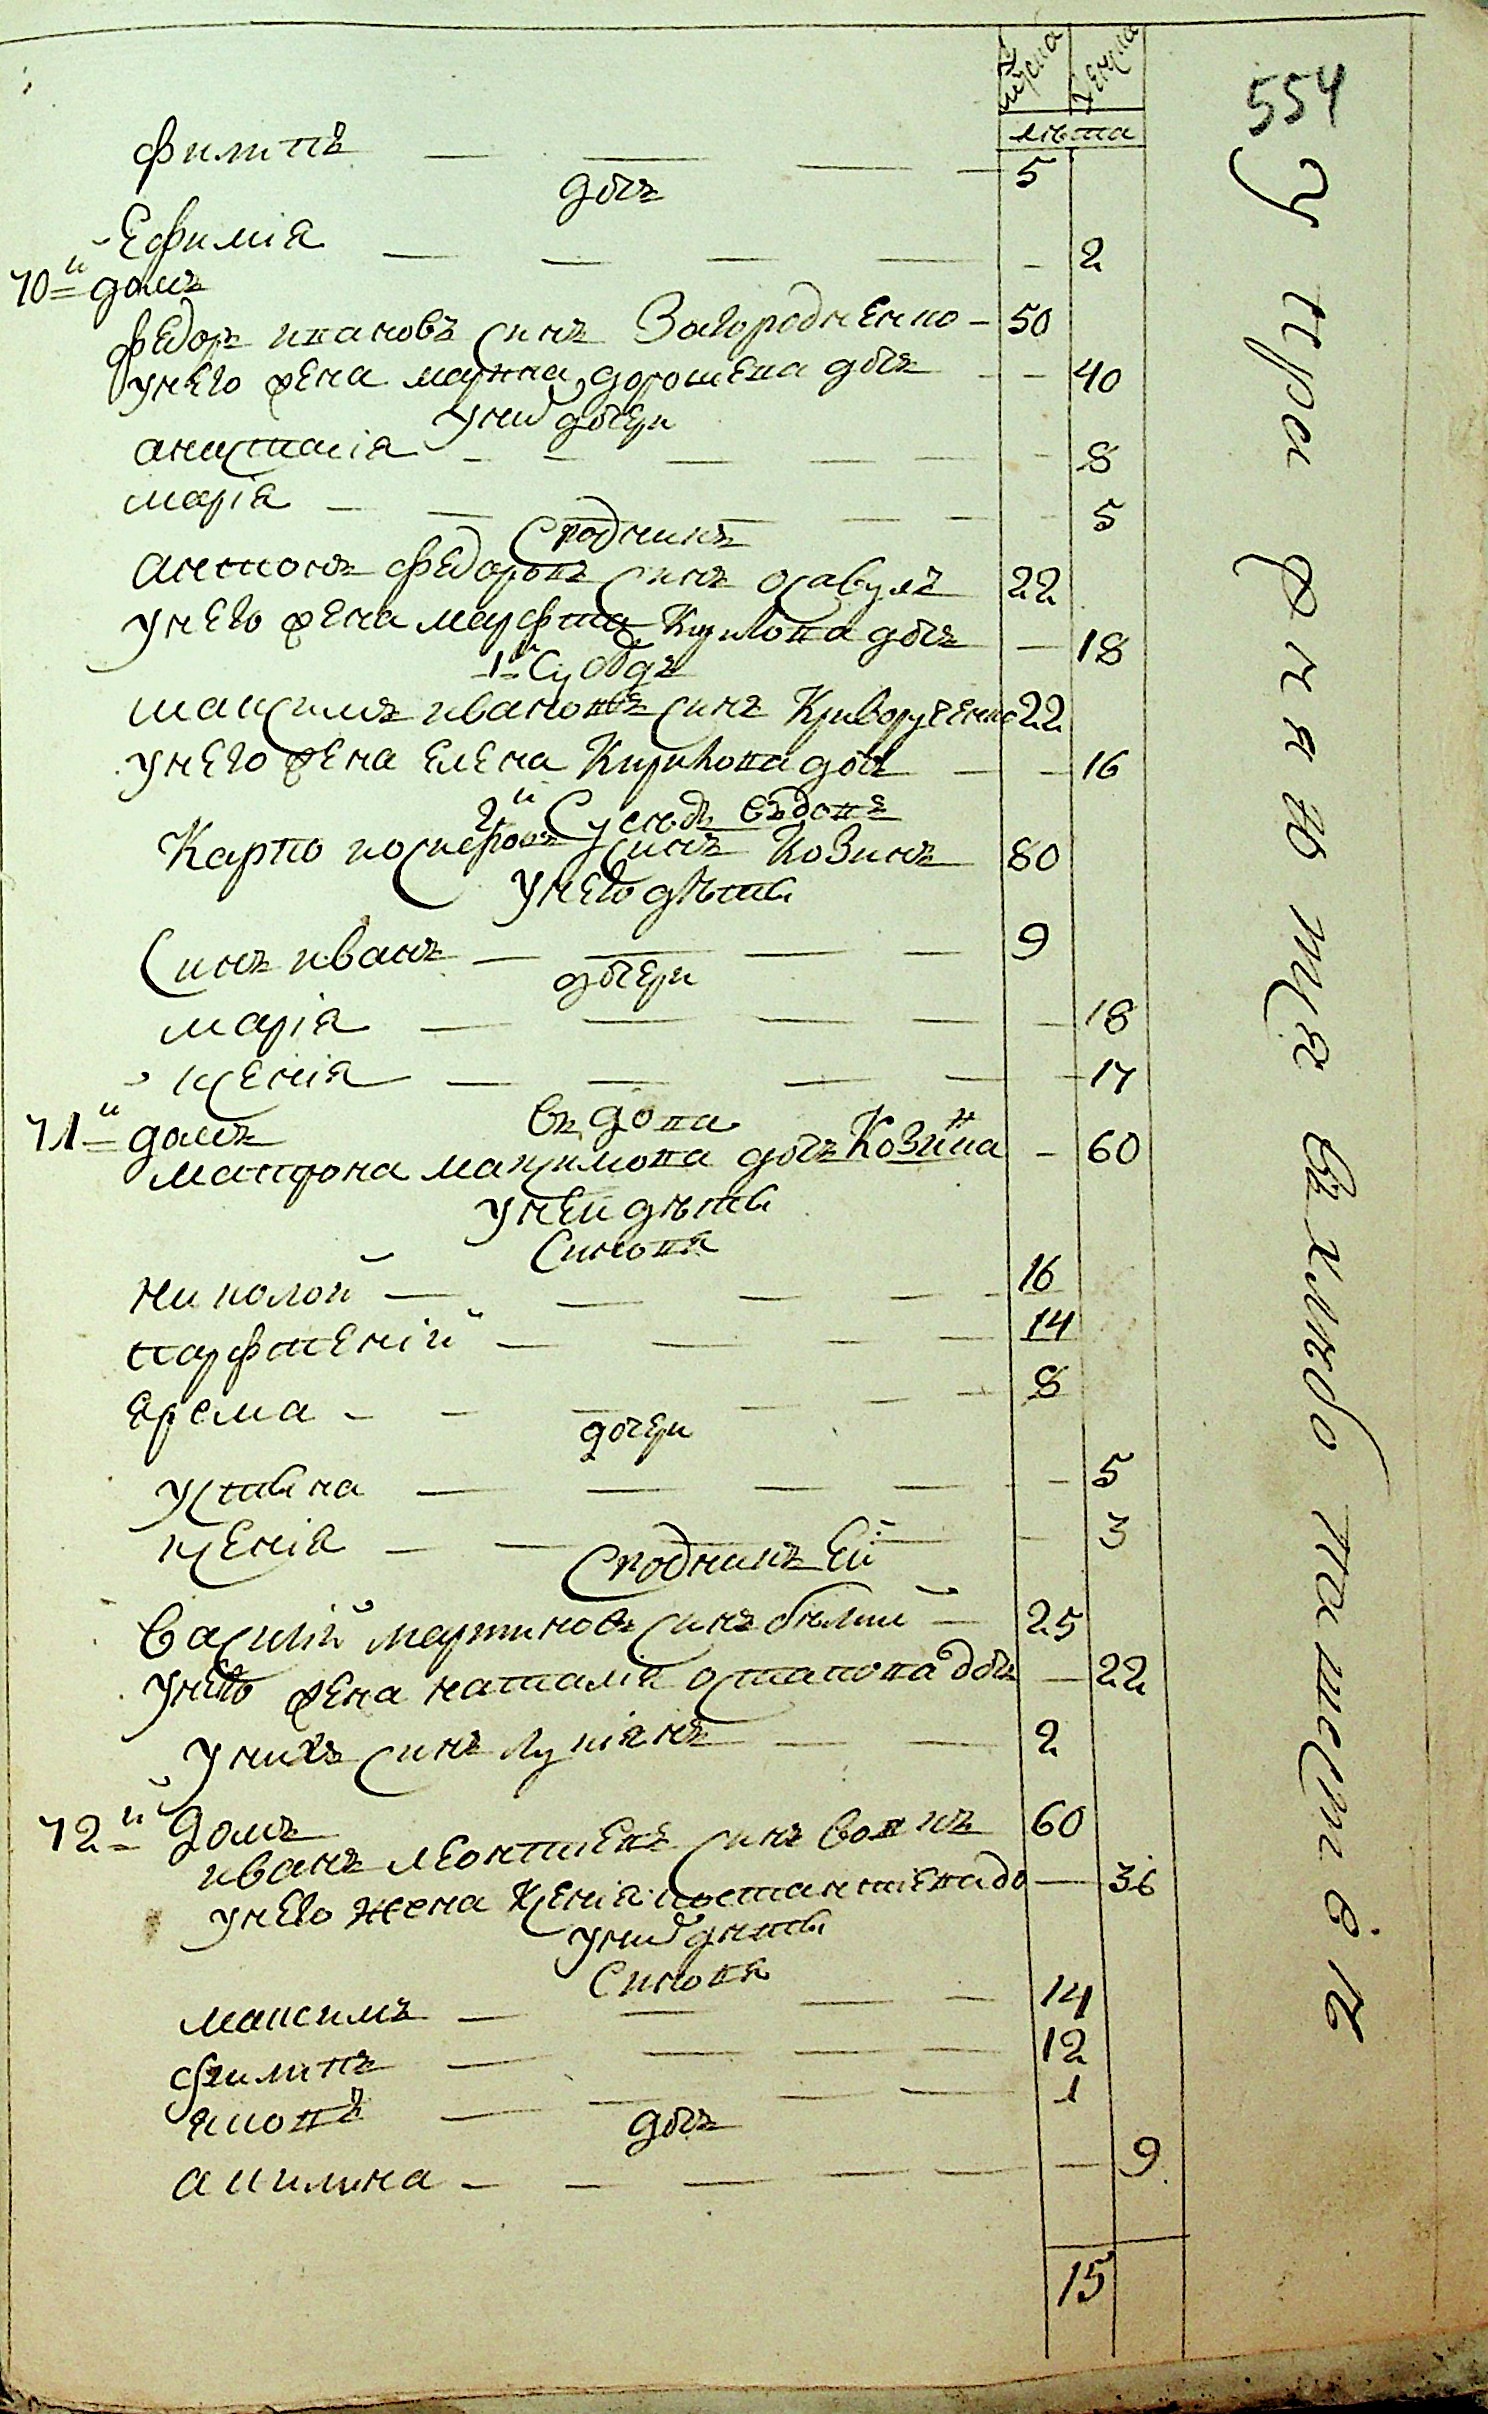 мужска женска
лѣта
554
филипъ 5
дочъ
Ефимія 2
70й домъ
федоръ ивановъ синъ Загородненко 50
у него жена марина дорошева дочъ 40
у них дочери
анастасія 8
марія 5
Сродникъ
антонъ федоровъ синъ осавулъ 22
у него жена марфта Кирилова дочъ 18
1й Сусѣдъ
максимъ ивановъ синъ Криворученко 22
у него жена елена Кирикова дочъ 16
2й Сусѣдъ вѣдовъ
Карпо нестеровъ синъ Козинъ 80
у него дѣти
Синъ иванъ 9
дочери
марія 18
ксенія 17
71й домъ вѣдова
матрона максимова дочъ Козина 60
у ней дѣти
Синовя
николай 16
парфтеній 14
ярема 8
дочери
устина 5
ксенія 3
Сродникъ Ей
василій мартиновъ синъ билий 25
у него жена наталія остапова дочъ 22
у нихъ синъ лукіянъ 2
72й домъ
иванъ леонтиевъ синъ вовкъ 60
у него жена Ксенія костантиева до 36
у них дѣти
Синовя
максимъ 14
филипъ 12
яковъ 1
дочъ
акилина 9
15